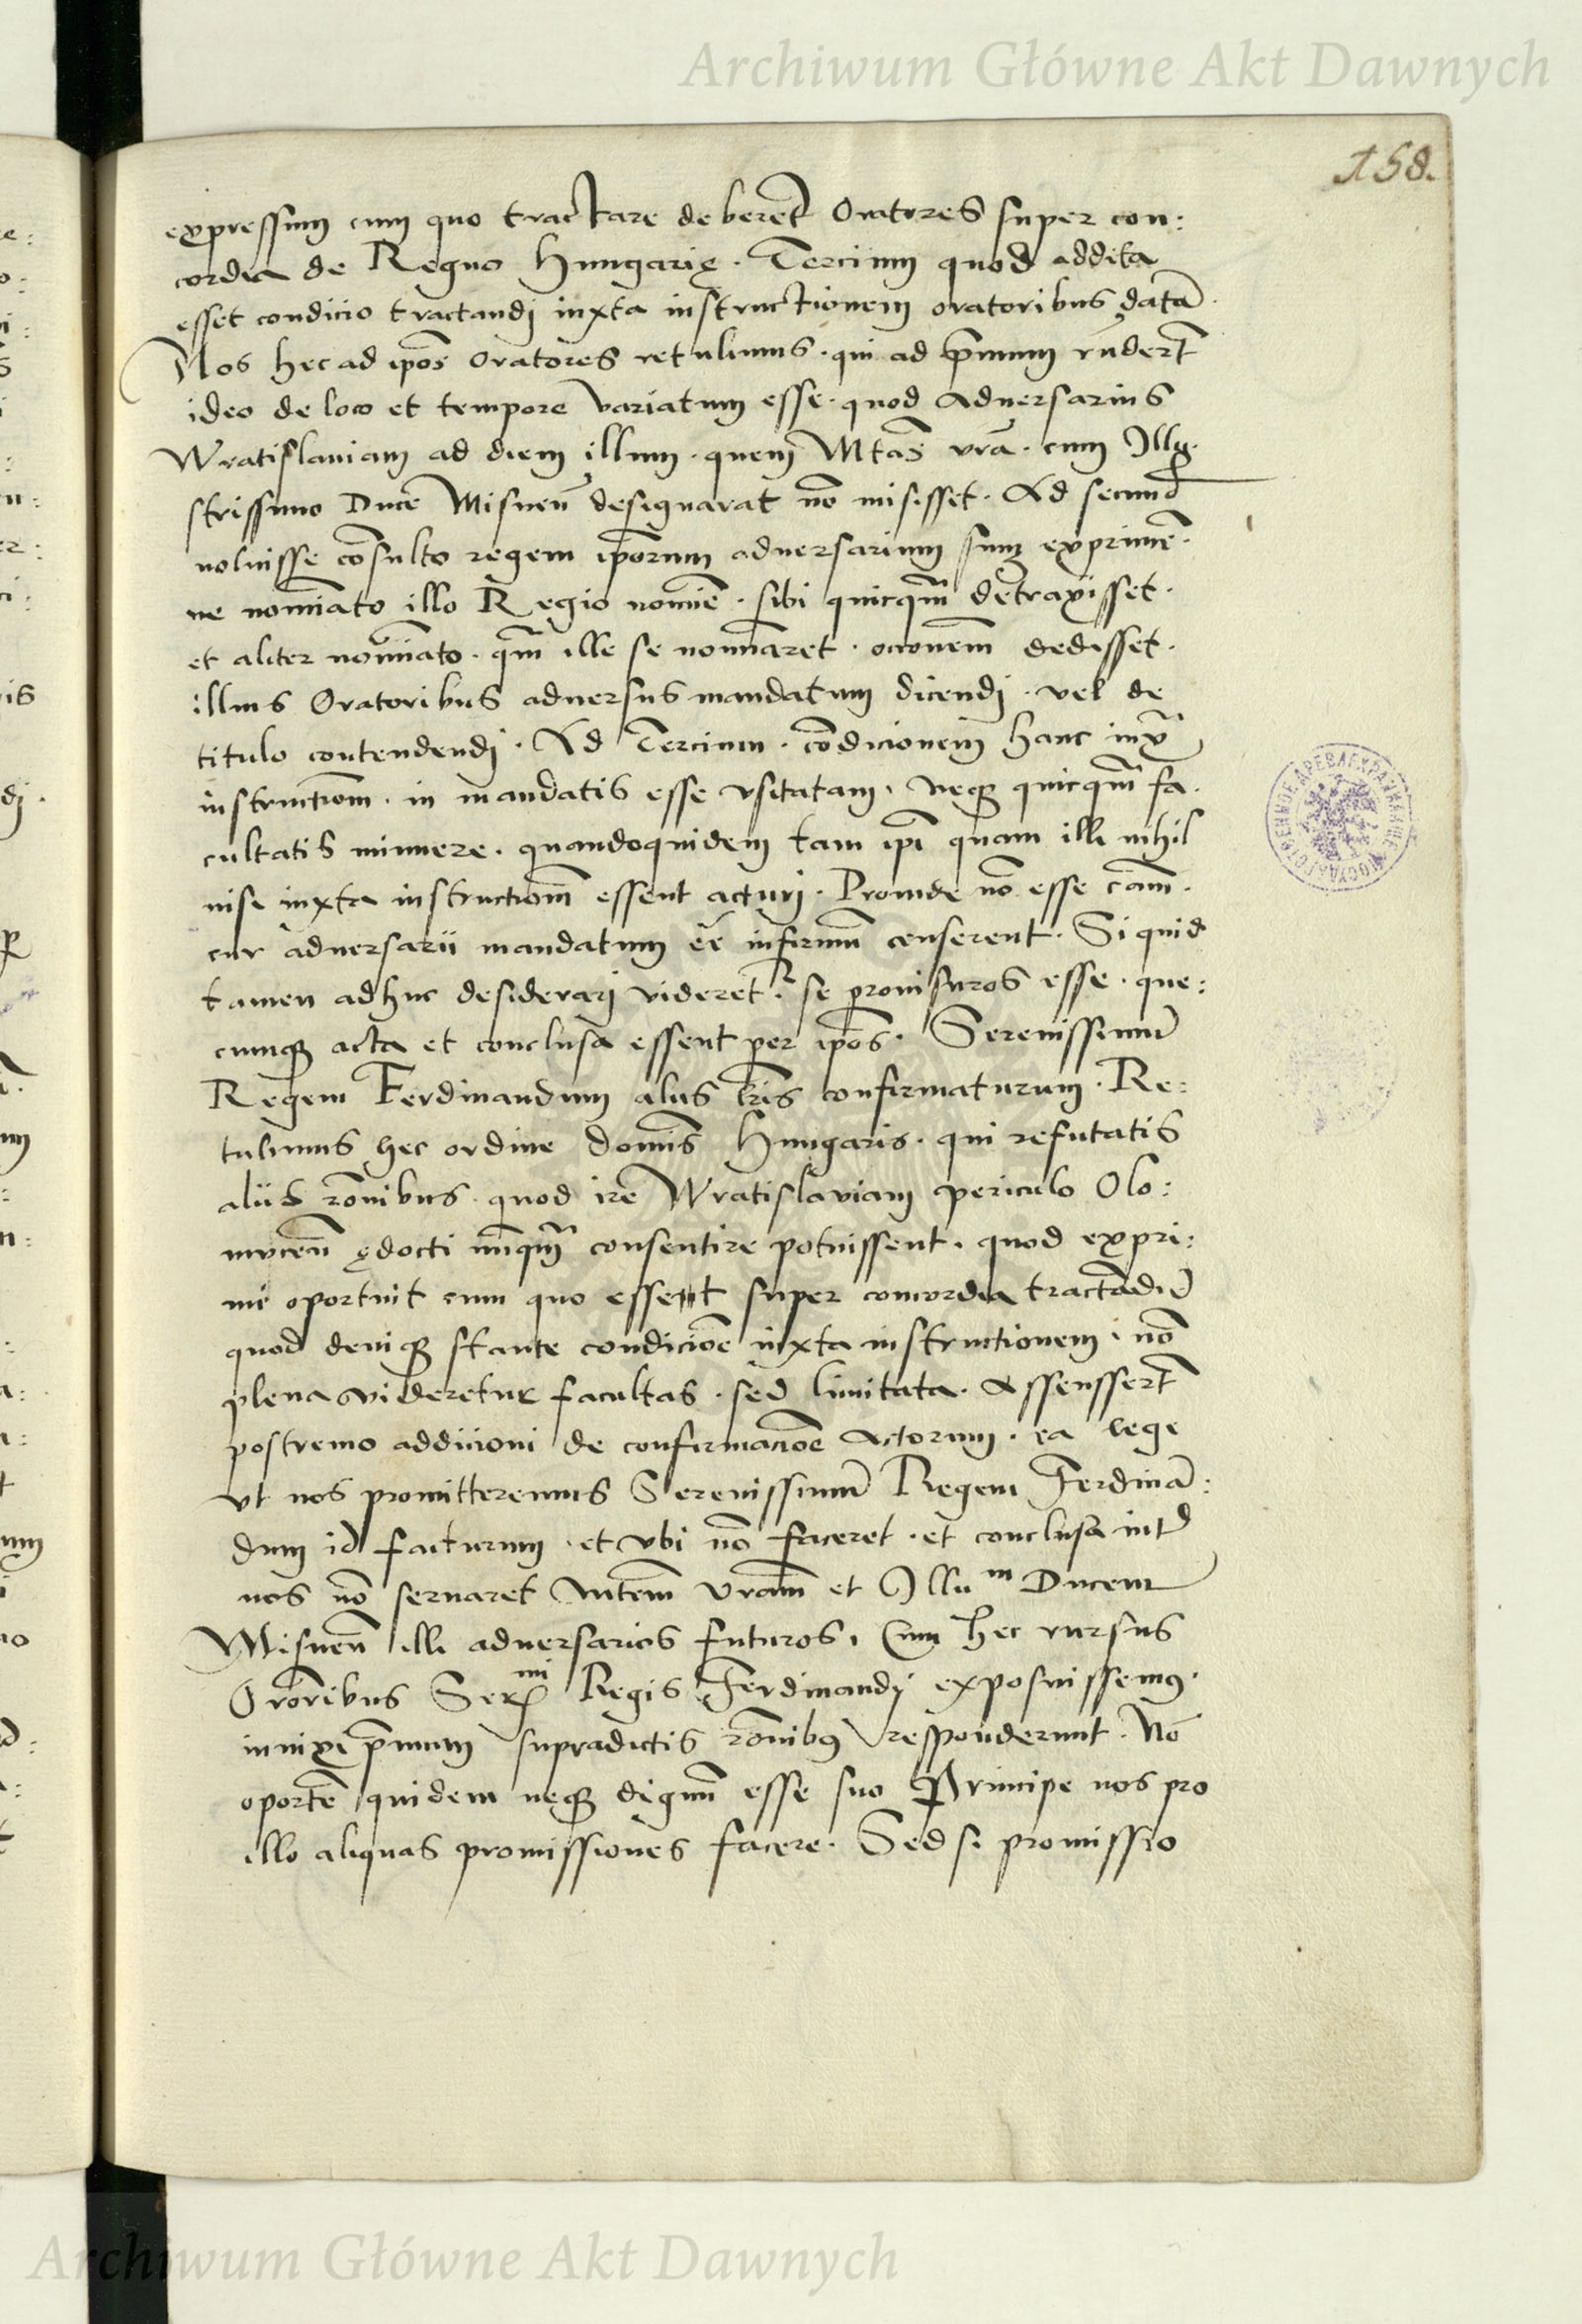 Archiwum Główne Akt Dawnych
158.
expressum cum quo tractare deberēt Oratores super con:
cordia de Regno Hungarię. Tercium quod addita
esset condicio tractandj iuxta instructionem oratoribus datā.
Nos hec ad ip̄os Oratores retulimus. qui ad p̄mum rn̄derūt
ideo de loco et tempore variatum esse. quod Aduersarius
Wratislauiam ad diem illum. quem Mtās vr̄a. cum Illu.
strissimo Duce Misnen̄ designarat nō misisset. Ad secund̄
noluisse cōsulto regem ip̄orum aduersarium suum exprimē.
ne nomīato illo Regio nomīe. sibi quicqm̄ detraxisset.
et aliter nomīato. qm̄ ille se nomīaret. occōnem dedisset.
illius Oratoribus aduersus mandatum dicendj. vel de
titulo contendendj. Ad Tercium. cōdicionem hanc iux̄
instructiōm. in mandatis esse vsitatam. neqꝫ quicqm̄ fa.
cultatis minuere. quandoquidem tam ip̄i quam illi nihil
nisi iuxta instructiōm essent acturj. Proinde nō esse cām.
cur aduersarii mandatum eē infirmū censerent. Si quid
tamen adhuc desiderarj viderēt. se prouisuros esse. que:
cumqꝫ acta et conclusa essent per ip̄os. Serenissimū
Regem Ferdinandum aliis lr̄is confirmaturum. Re:
tulimus hec ordine domīs Hungaris. qui refutatis
aliis rōnibus. quod ire Wratislauiam periculo Olo:
mucen̄ ędocti nūqm̄ consentire potuissent. quod expri:
mi oportuit cum quo essent super concordia tractādū
quod deniqꝫ stante condiciōe iuxta instructionem. nō
plena videretur facultas. sed limitata. Assensserūt
postremo addicioni de confirmaciōe Actorum. ea lege
vt nos promitteremus Serenissimū Regem Ferdinā:
dum id facturum. et vbi nō faceret. et conclusa int̄
nos nō seruaret Mtem̄ vram̄ et Illu m Ducem
Misnen̄ illi aduersarios futuros. Cum hec rursus
Orōribus Ser mi Regis Ferdinandj exposuissemꝰ.
innixi p̄mum supradictis rōnibꝰ responderunt. Nō
oportē quidem neqꝫ dignū esse suo Principe nos pro
illo aliquas promissiones facere. Sed si promissio
Archiwum Główne Akt Dawnych